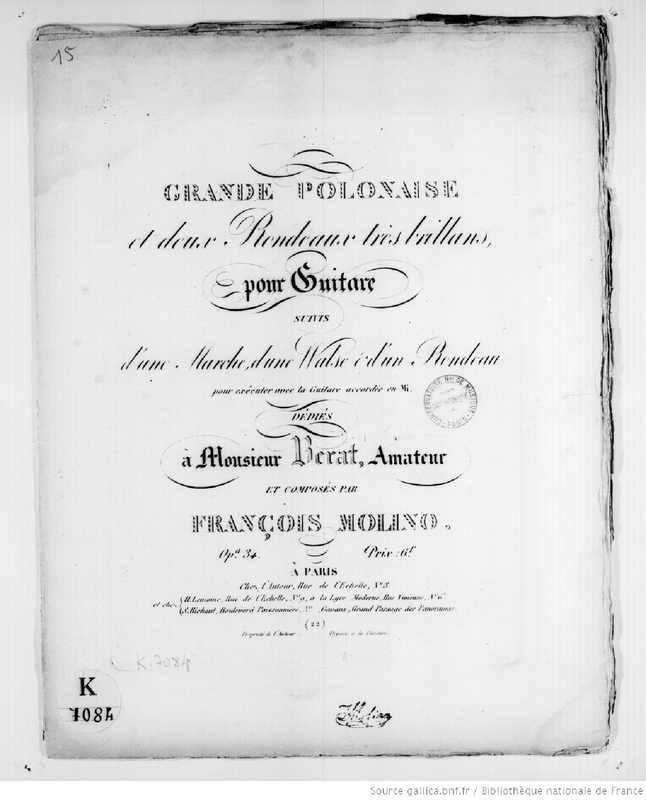 15
GRANDE POLONAISE
et deux Rondeaux très brillans,
pour Guitare
SUIVIS
d'une Marche, d'une Walse & d'un Rondeau
pour exécuter avec la Guitare accordée en Mi.
DÉDIÉS
à Monsieur Berat, Amateur
ET COMPOSÉS PAR
FRANÇOIS MOLINO.
Op.a 34. Prix: 6f
À PARIS
Chez l'Auteur, Rue de l'Echelle, No 3.
et chez H. Lemoine, Rue de l'Echelle, No 9, à la Lyre Moderne, Rue Vivienne, No 6
S. Richaut, Boulevard Poissonnière, Gavaux, Grand Passage des Panoramas
(22)
Propriété de l'Auteur. Déposé à la Direction.
K.7084
K
7084
CONSERVATOIRE NAL DE MUSIQUE
PARIS
Source gallica.bnf.fr / Bibliothèque nationale de France